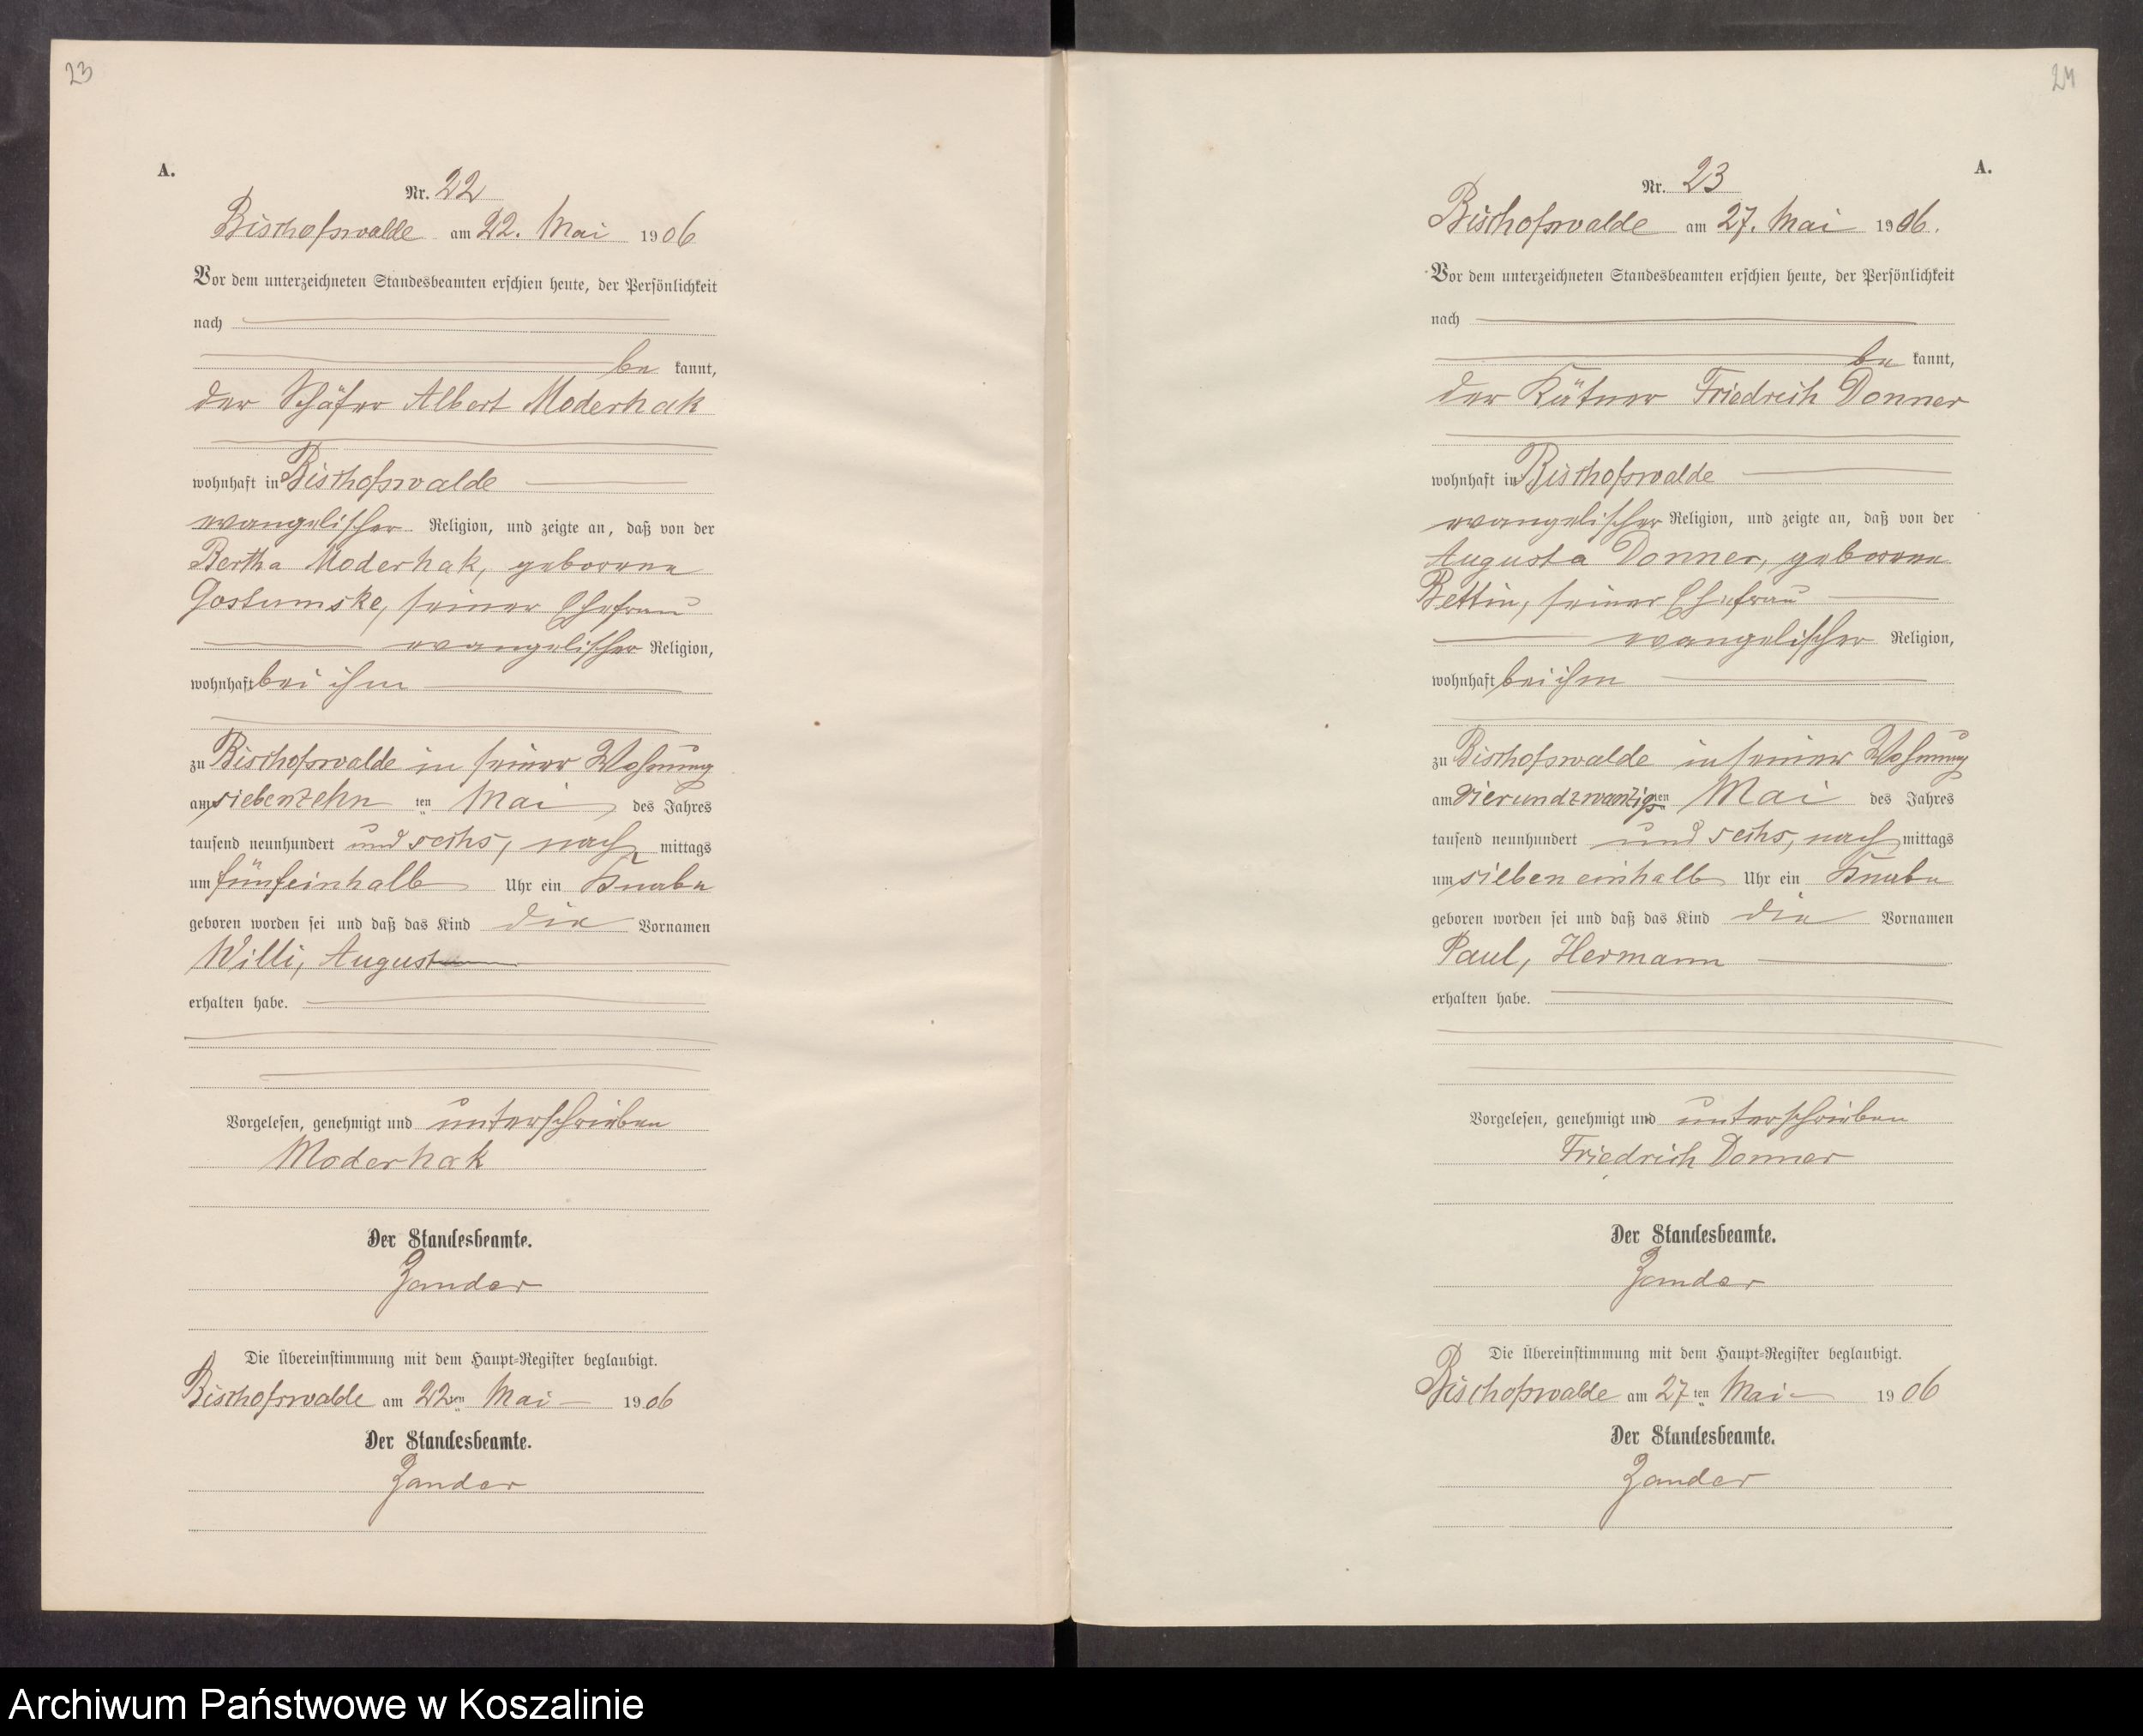 23
A.
Nr. 22
Bischofswalde am 22. Mai 1906
Vor dem unterzeichneten Standesbeamten erschien heute, der Persönlichkeit
nach
be kannt,
der Schäfer Albert Moderhak
wohnhaft in Bischofswalde
evangelischer Religion, und zeigte an, daß von der
Bertha Moderhak, geborene
Gostumske, seiner Ehefrau
evangelischer Religion,
wohnhaft bei ihm
zu Bischofswalde in seiner Wohnung
am siebenzehn ten Mai des Jahres
tausend neunhundert und sechs, nach mittags
um fünfeinhalb Uhr ein Knabe
geboren worden sei und daß das Kind die Vornamen
Willi, August
erhalten habe.
Vorgelesen, genehmigt und unterschrieben
Moderhak
Der Standesbeamte.
Zander
Die Übereinstimmung mit dem Haupt-Register beglaubigt.
Bischofswalde am 22ten Mai 1906
Der Standesbeamte.
Zander
24
A.
Nr. 23
Bischofswalde am 27. Mai 1906.
Vor dem unterzeichneten Standesbeamten erschien heute, der Persönlichkeit
nach
be kannt,
der Kätner Friedrich Donner
wohnhaft in Bischofswalde
evangelischer Religion, und zeigte an, daß von der
Augusta Donner, geborene
Bettin, seiner Ehefrau
evangelischer Religion,
wohnhaft bei ihm
zu Bischofswalde in seiner Wohnung
am vierundzwanzigsten Mai des Jahres
tausend neunhundert und sechs, nach mittags
um siebeneinhalb Uhr ein Knabe
geboren worden sei und daß das Kind die Vornamen
Paul, Hermann
erhalten habe.
Vorgelesen, genehmigt und unterschrieben
Friedrich Donner
Der Standesbeamte.
Zander
Die Übereinstimmung mit dem Haupt-Register beglaubigt.
Bischofswalde am 27 ten Mai 1906
Der Standesbeamte.
Zander
Archiwum Państwowe w Koszalinie